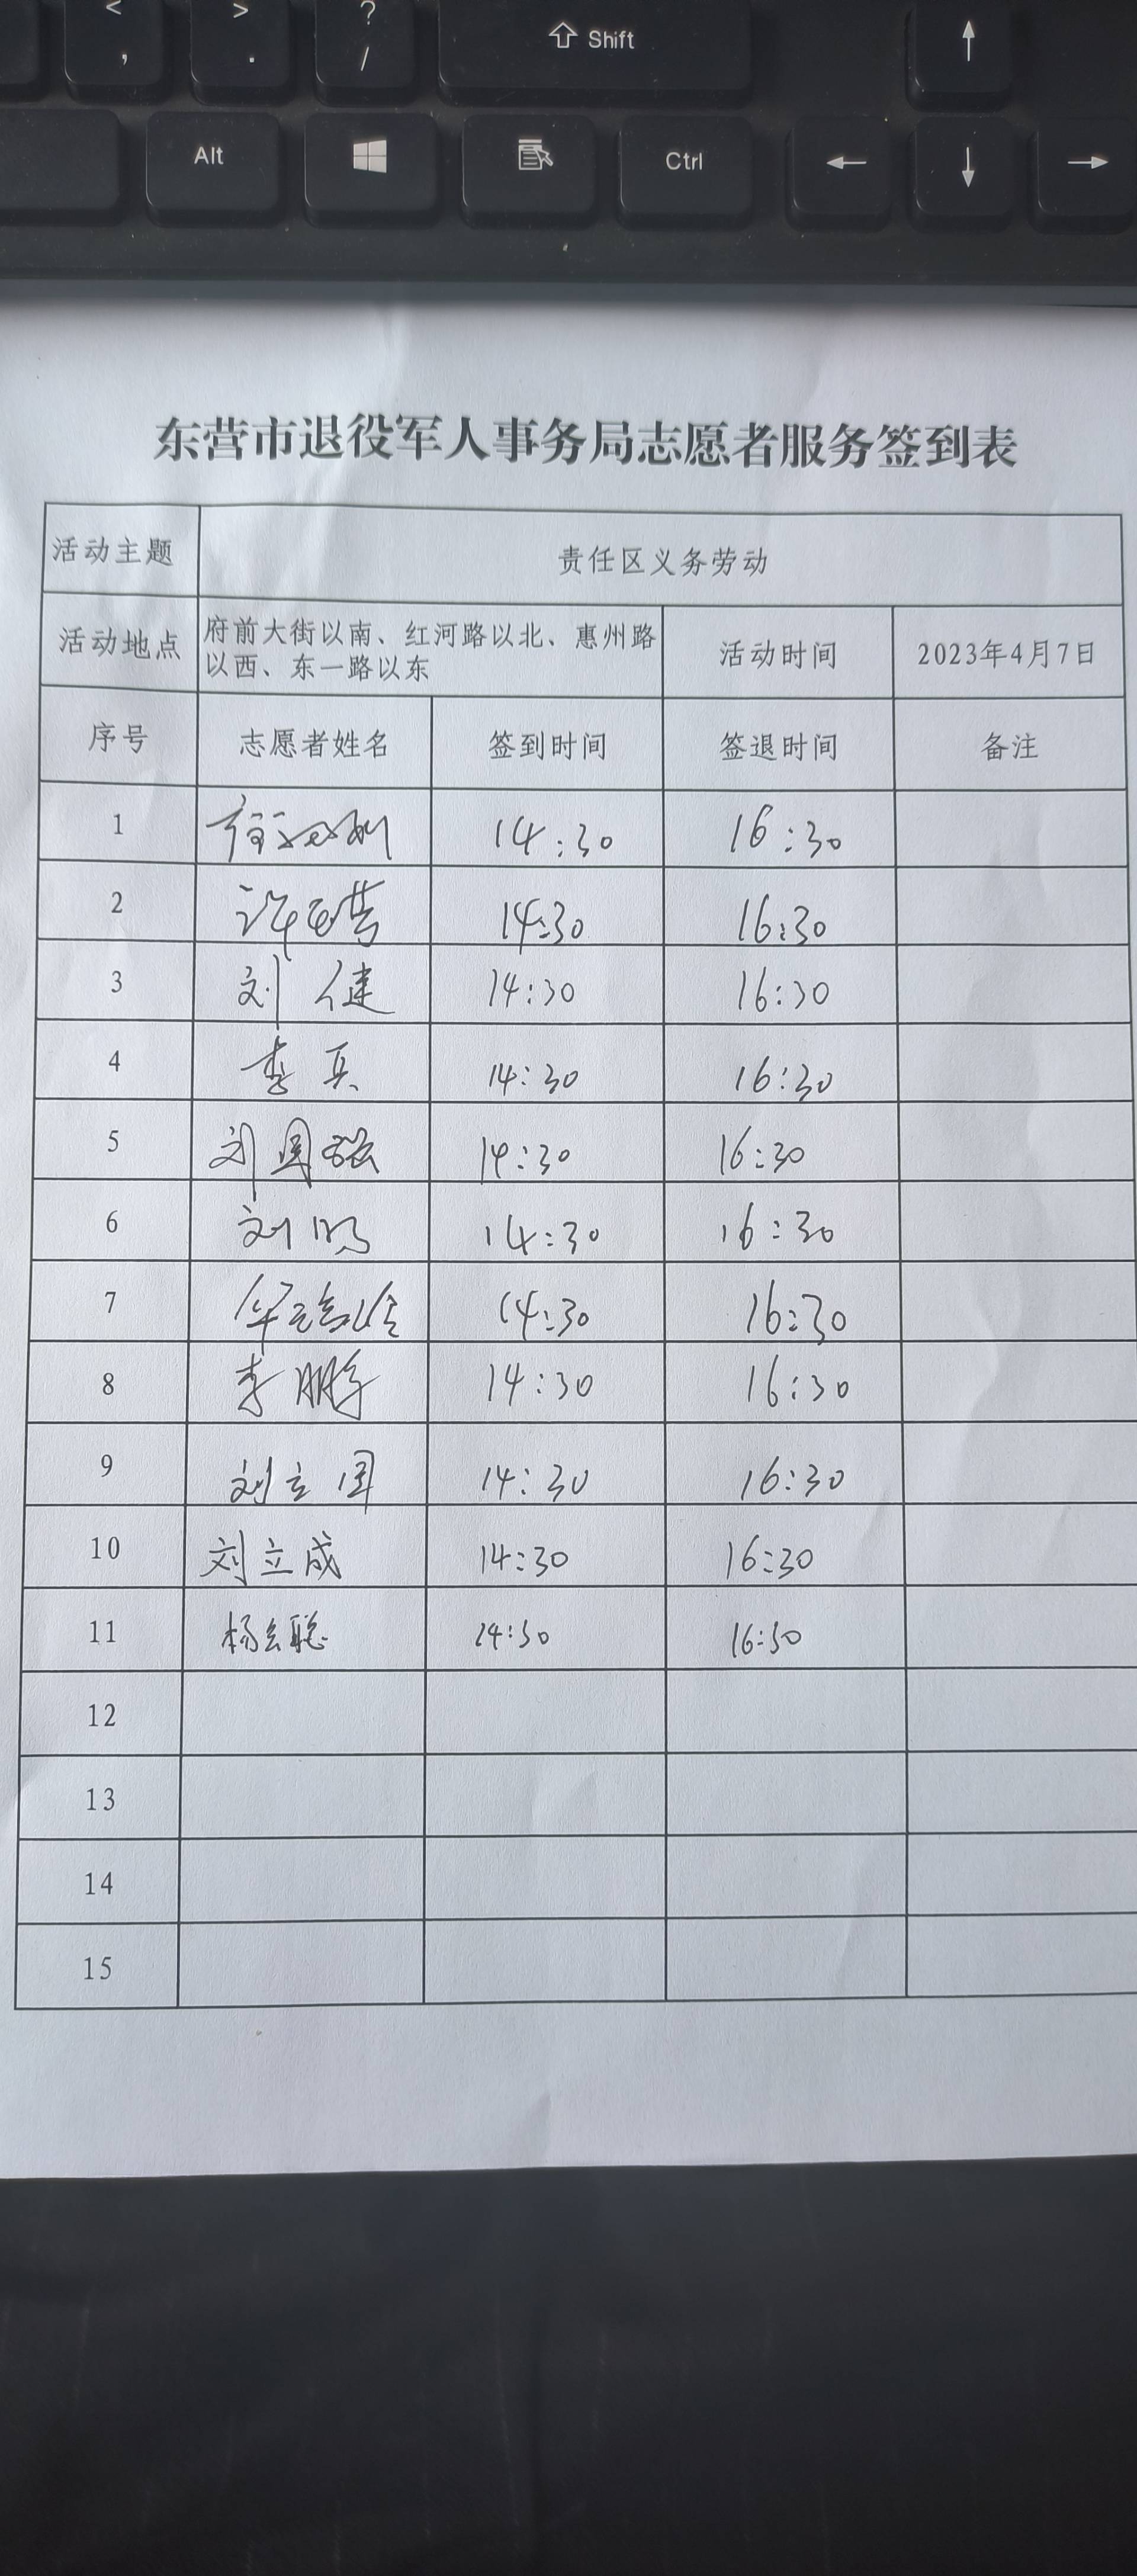 < ,
> .
? /
Shift
Alt
Ctrl
东营市退役军人事务局志愿者服务签到表
活动主题 责任区义务劳动
活动地点 府前大街以南、红河路以北、惠州路
以西、东一路以东 活动时间 2023年4月7日
序号 志愿者姓名 签到时间 签退时间 备注
1 14:30 16:30
2 许 14:30 16:30
3 刘健 14:30 16:30
4 李兵 14:30 16:30
5 刘国强 14:30 16:30
6 刘明 14:30 16:30
7 14:30 16:30
8 李鹏 14:30 16:30
9 刘立国 14:30 16:30
10 刘立成 14:30 16:30
11 杨会聪 14:30 16:30
12
13
14
15